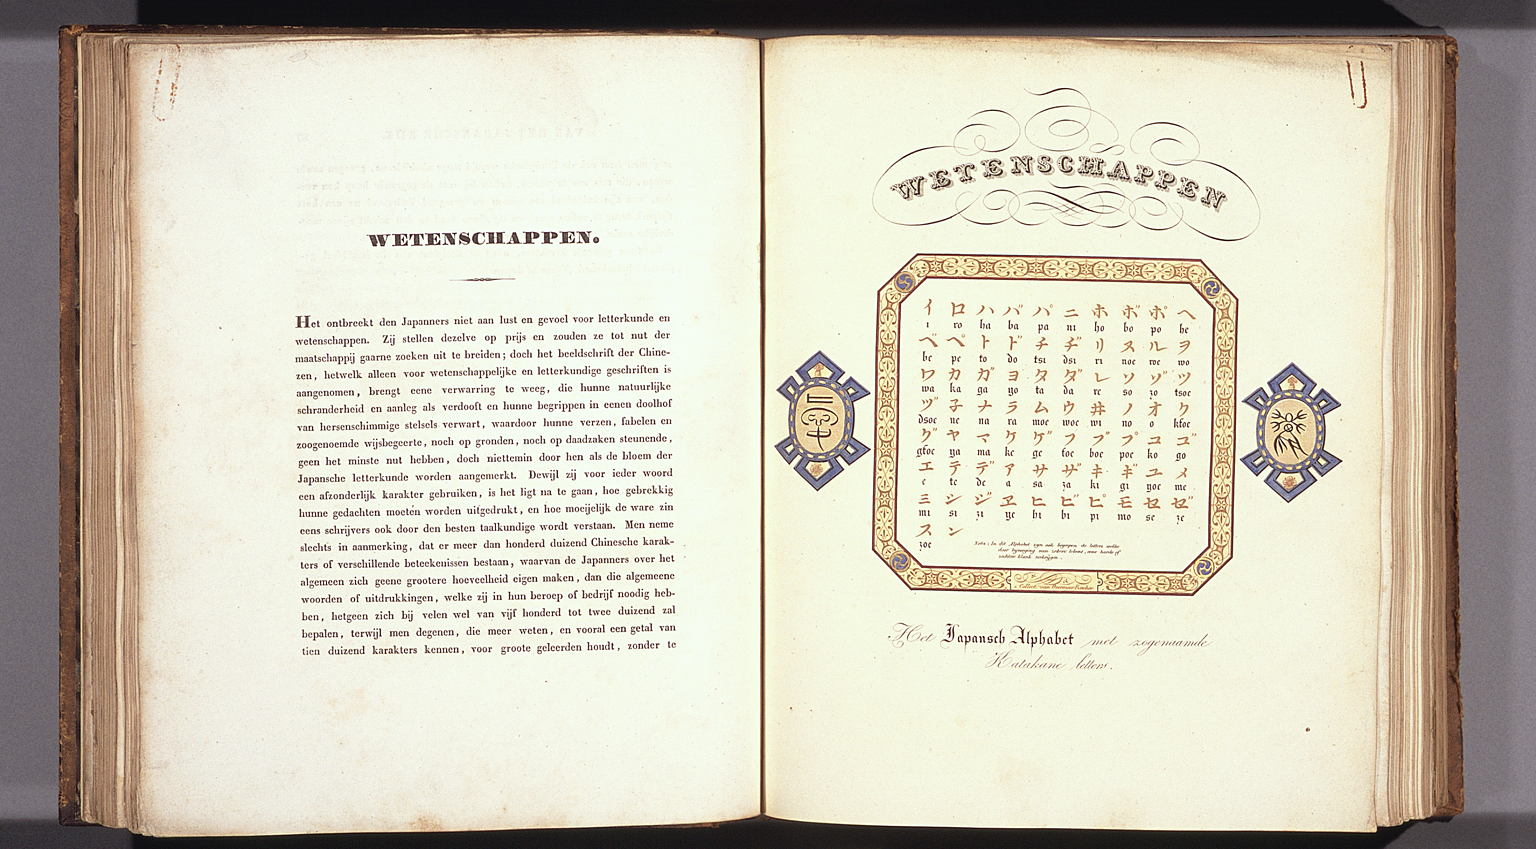 WETENSCHAPPEN.
Het ontbreekt den Japanners niet aan lust en gevoel voor letterkunde en
wetenschappen. Zij stellen dezelve op prijs en zouden ze tot nut der
maatschappij gaarne zoeken uit te breiden; doch het beeldschrift der Chine-
zen, hetwelk alleen voor wetenschappelijke en letterkundige geschriften is
aangenomen, brengt eene verwarring te weeg, die hunne natuurlijke
schranderheid en aanleg als verdooft en hunne begrippen in eenen doolhof
van hersenschimmige stelsels verwart, waardoor hunne verzen, fabelen en
zoogenoemde wijsbegeerte, noch op gronden, noch op daadzaken steunende,
geen het minste nut hebben, doch niettemin door hen als de bloem der
Japansche letterkunde worden aangemerkt. Dewijl zij voor ieder woord
een afzonderlijk karakter gebruiken, is het ligt na te gaan, hoe gebrekkig
hunne gedachten moeten worden uitgedrukt, en hoe moeijelijk de ware zin
eens schrijvers ook door den besten taalkundige wordt verstaan. Men neme
slechts in aanmerking, dat er meer dan honderd duizend Chinesche karak-
ters of verschillende beteekenissen bestaan, waarvan de Japanners over het
algemeen zich geene grootere hoeveelheid eigen maken, dan die algemeene
woorden of uitdrukkingen, welke zij in hun beroep of bedrijf noodig heb-
ben, hetgeen zich bij velen wel van vijf honderd tot twee duizend zal
bepalen, terwijl men degenen, die meer weten, en vooral een getal van
tien duizend karakters kennen, voor groote geleerden houdt, zonder te
WETENSCHAPPEN
イ ロ ハ バ パ ニ ホ ボ ポ ヘ
i ro ha ba pa ni ho bo po he
ベ ペ ト ド チ ヂ リ ヌ ル ヲ
be pe to do tsi dsi ri noe roe wo
ワ カ ガ ヨ タ ダ レ ソ ゾ ツ
wa ka ga yo ta da re so zo tsoe
ヅ 子 ナ ラ ム ウ 井 ノ オ ク
dsoe ne na ra moe woe wi no o kfoe
グ ヤ マ ケ ゲ フ ブ プ コ ゴ
gfoe ya ma ke ge foe boe poe ko go
エ テ デ ア サ ザ キ ギ ユ メ
e te de a sa za ki gi yoe me
ミ シ ジ ヱ ヒ ビ ピ モ セ ゼ
mi si zi ye hi bi pi mo se ze
ス ン
zoe
Nota: In dit Alphabet zijn ook begrepen de letters welke
door bijvoeging van zekere teekens, eene harde of
zachtere klank verkrijgen.
Het Japansch Alphabet met zogenaamde
Katakane letters.